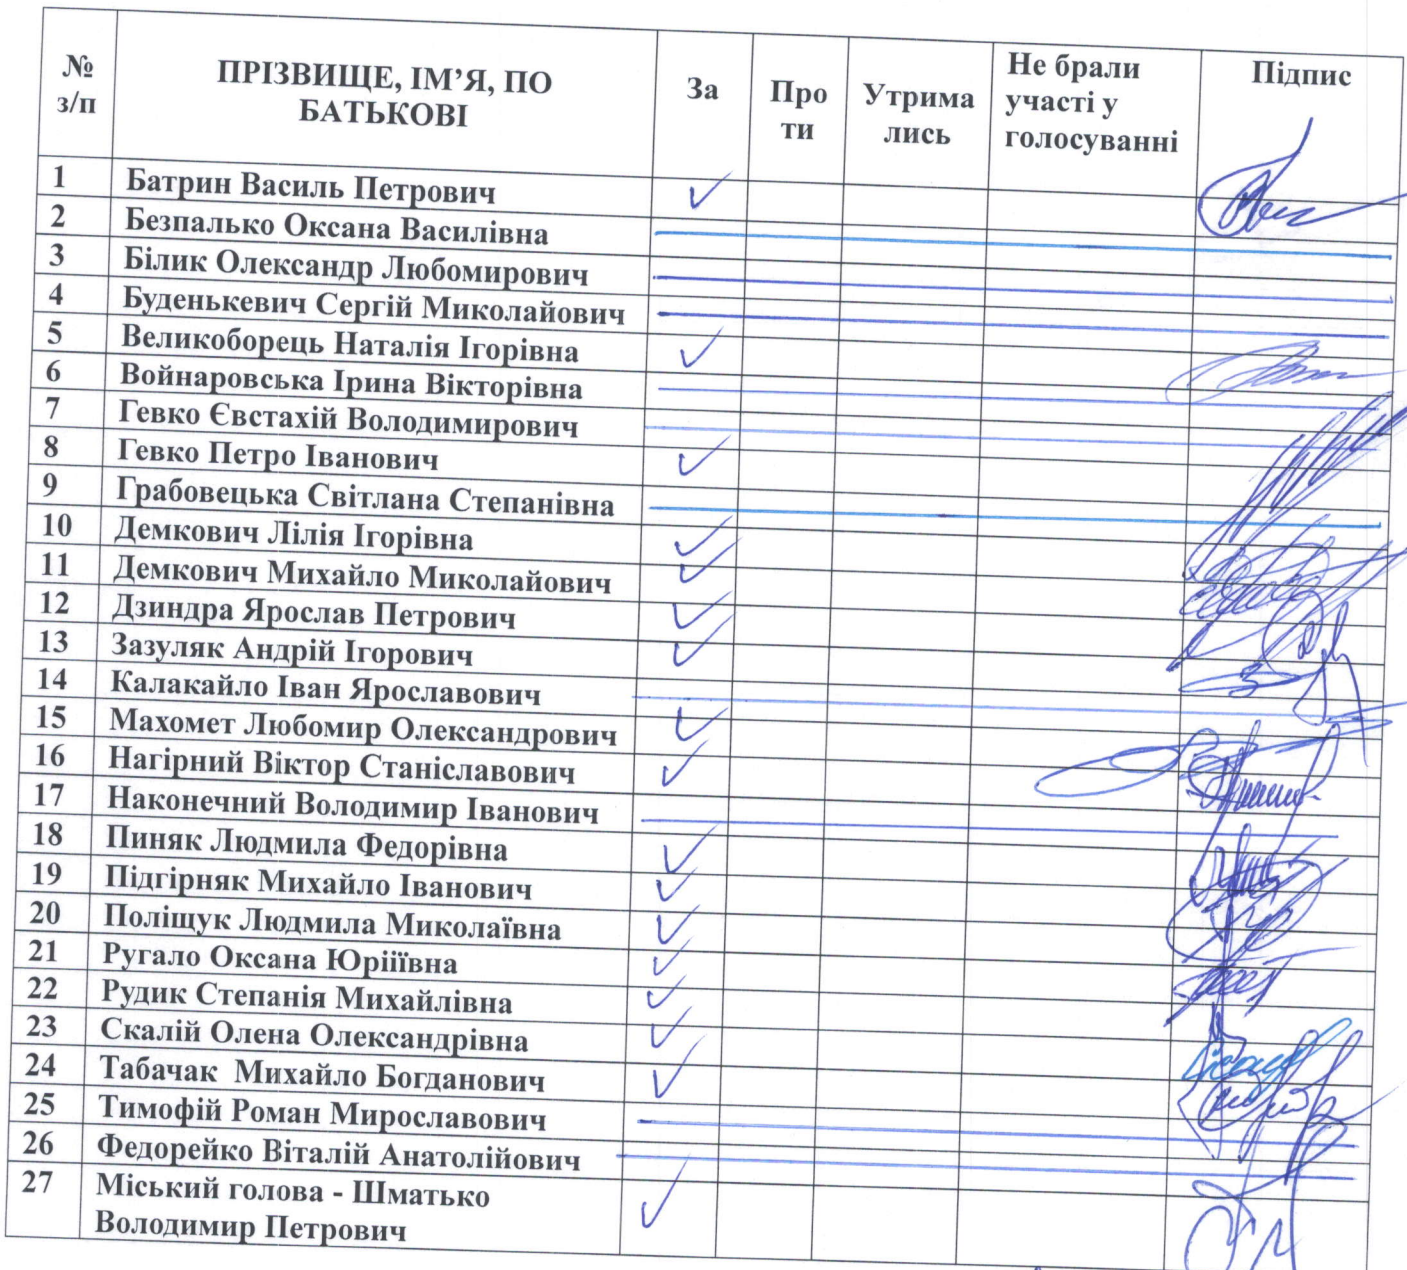 № з/п ПРІЗВИЩЕ, ІМ’Я, ПО БАТЬКОВІ За Проти Утримались Не брали участі у голосуванні Підпис
1 Батрин Василь Петрович
2 Безпалько Оксана Василівна
3 Білик Олександр Любомирович
4 Буденькевич Сергій Миколайович
5 Великоборець Наталія Ігорівна
6 Войнаровська Ірина Вікторівна
7 Гевко Євстахій Володимирович
8 Гевко Петро Іванович
9 Грабовецька Світлана Степанівна
10 Демкович Лілія Ігорівна
11 Демкович Михайло Миколайович
12 Дзиндра Ярослав Петрович
13 Зазуляк Андрій Ігорович
14 Калакайло Іван Ярославович
15 Махомет Любомир Олександрович
16 Нагірний Віктор Станіславович
17 Наконечний Володимир Іванович
18 Пиняк Людмила Федорівна
19 Підгірняк Михайло Іванович
20 Поліщук Людмила Миколаївна
21 Ругало Оксана Юріїївна
22 Рудик Степанія Михайлівна
23 Скалій Олена Олександрівна
24 Табачак Михайло Богданович
25 Тимофій Роман Мирославович
26 Федорейко Віталій Анатолійович
27 Міський голова - Шматько
Володимир Петрович